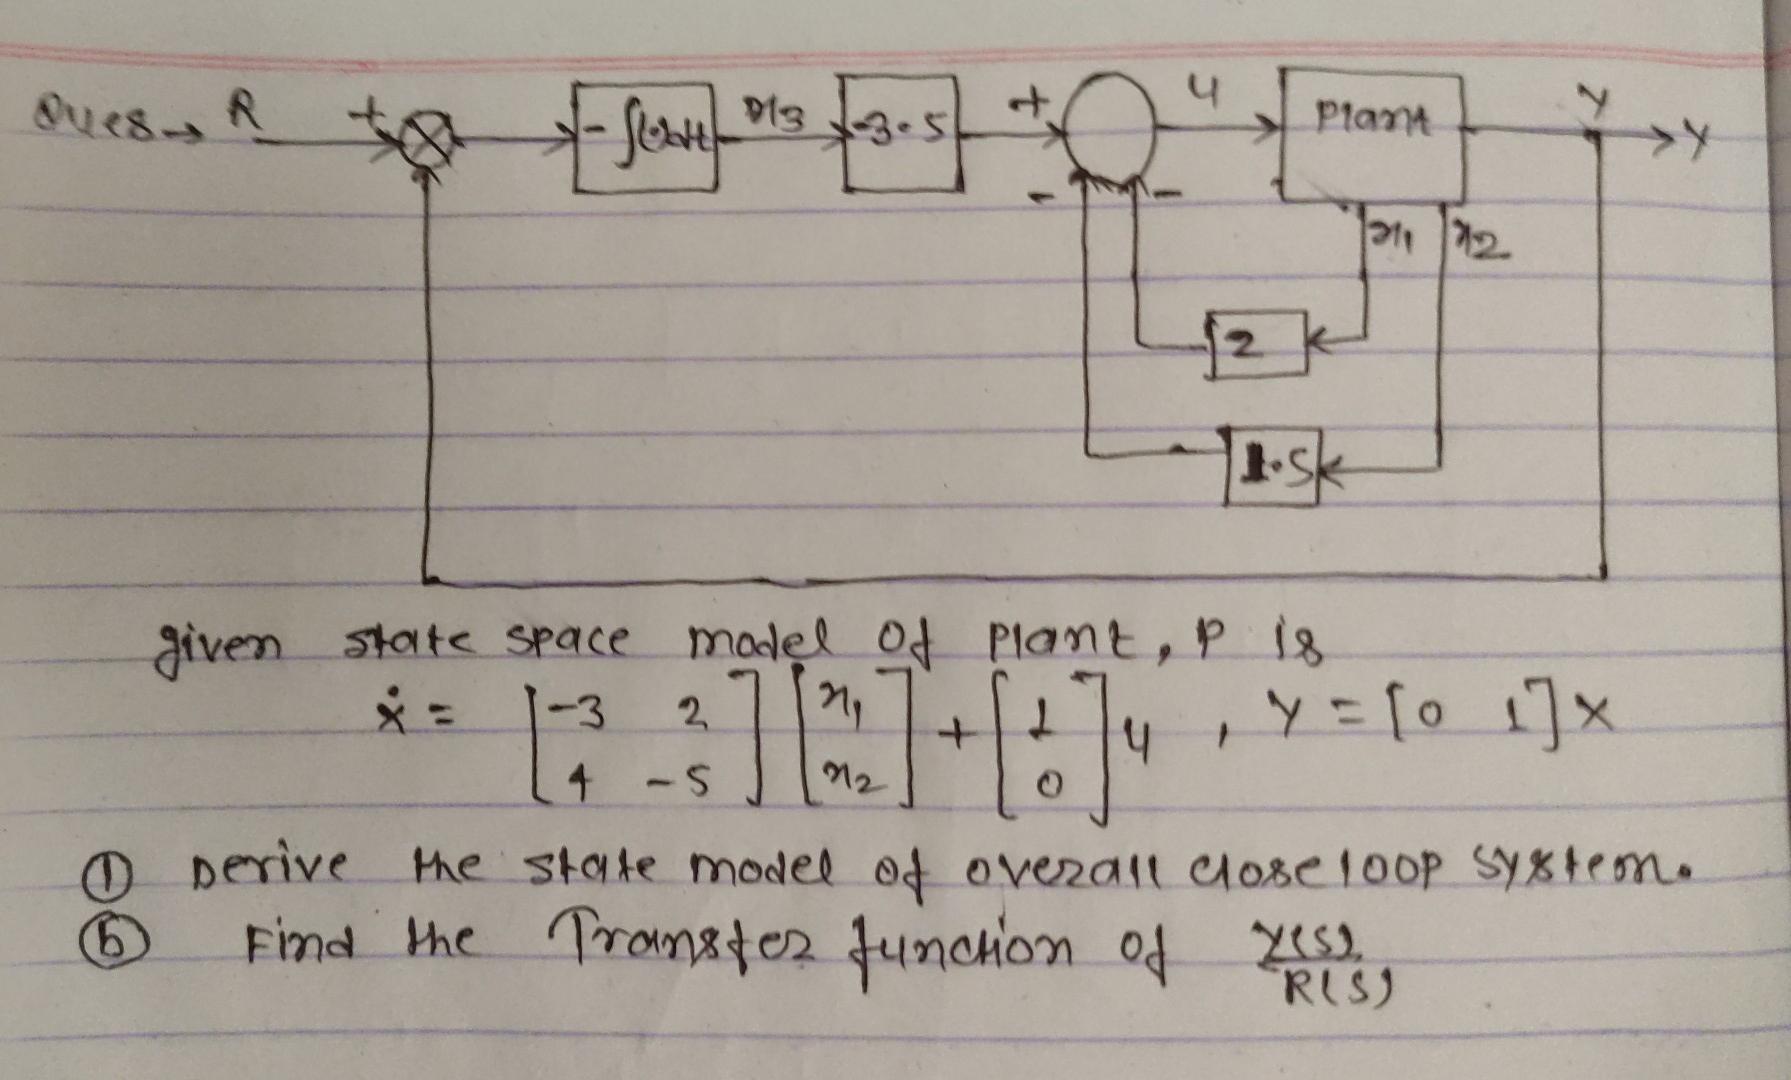 Ques → R + -∫(.)dt x3 -3.5 + u Plant Y → Y
- -
x1 x2
2
1.5
given state space model of plant, P is
ẋ = [-3 2 4 -5] [x1 x2] + [1 0] u , Y = [0 1] X
① Derive the state model of overall close loop system.
⑥ Find the Transfer function of Y(S)/R(S)